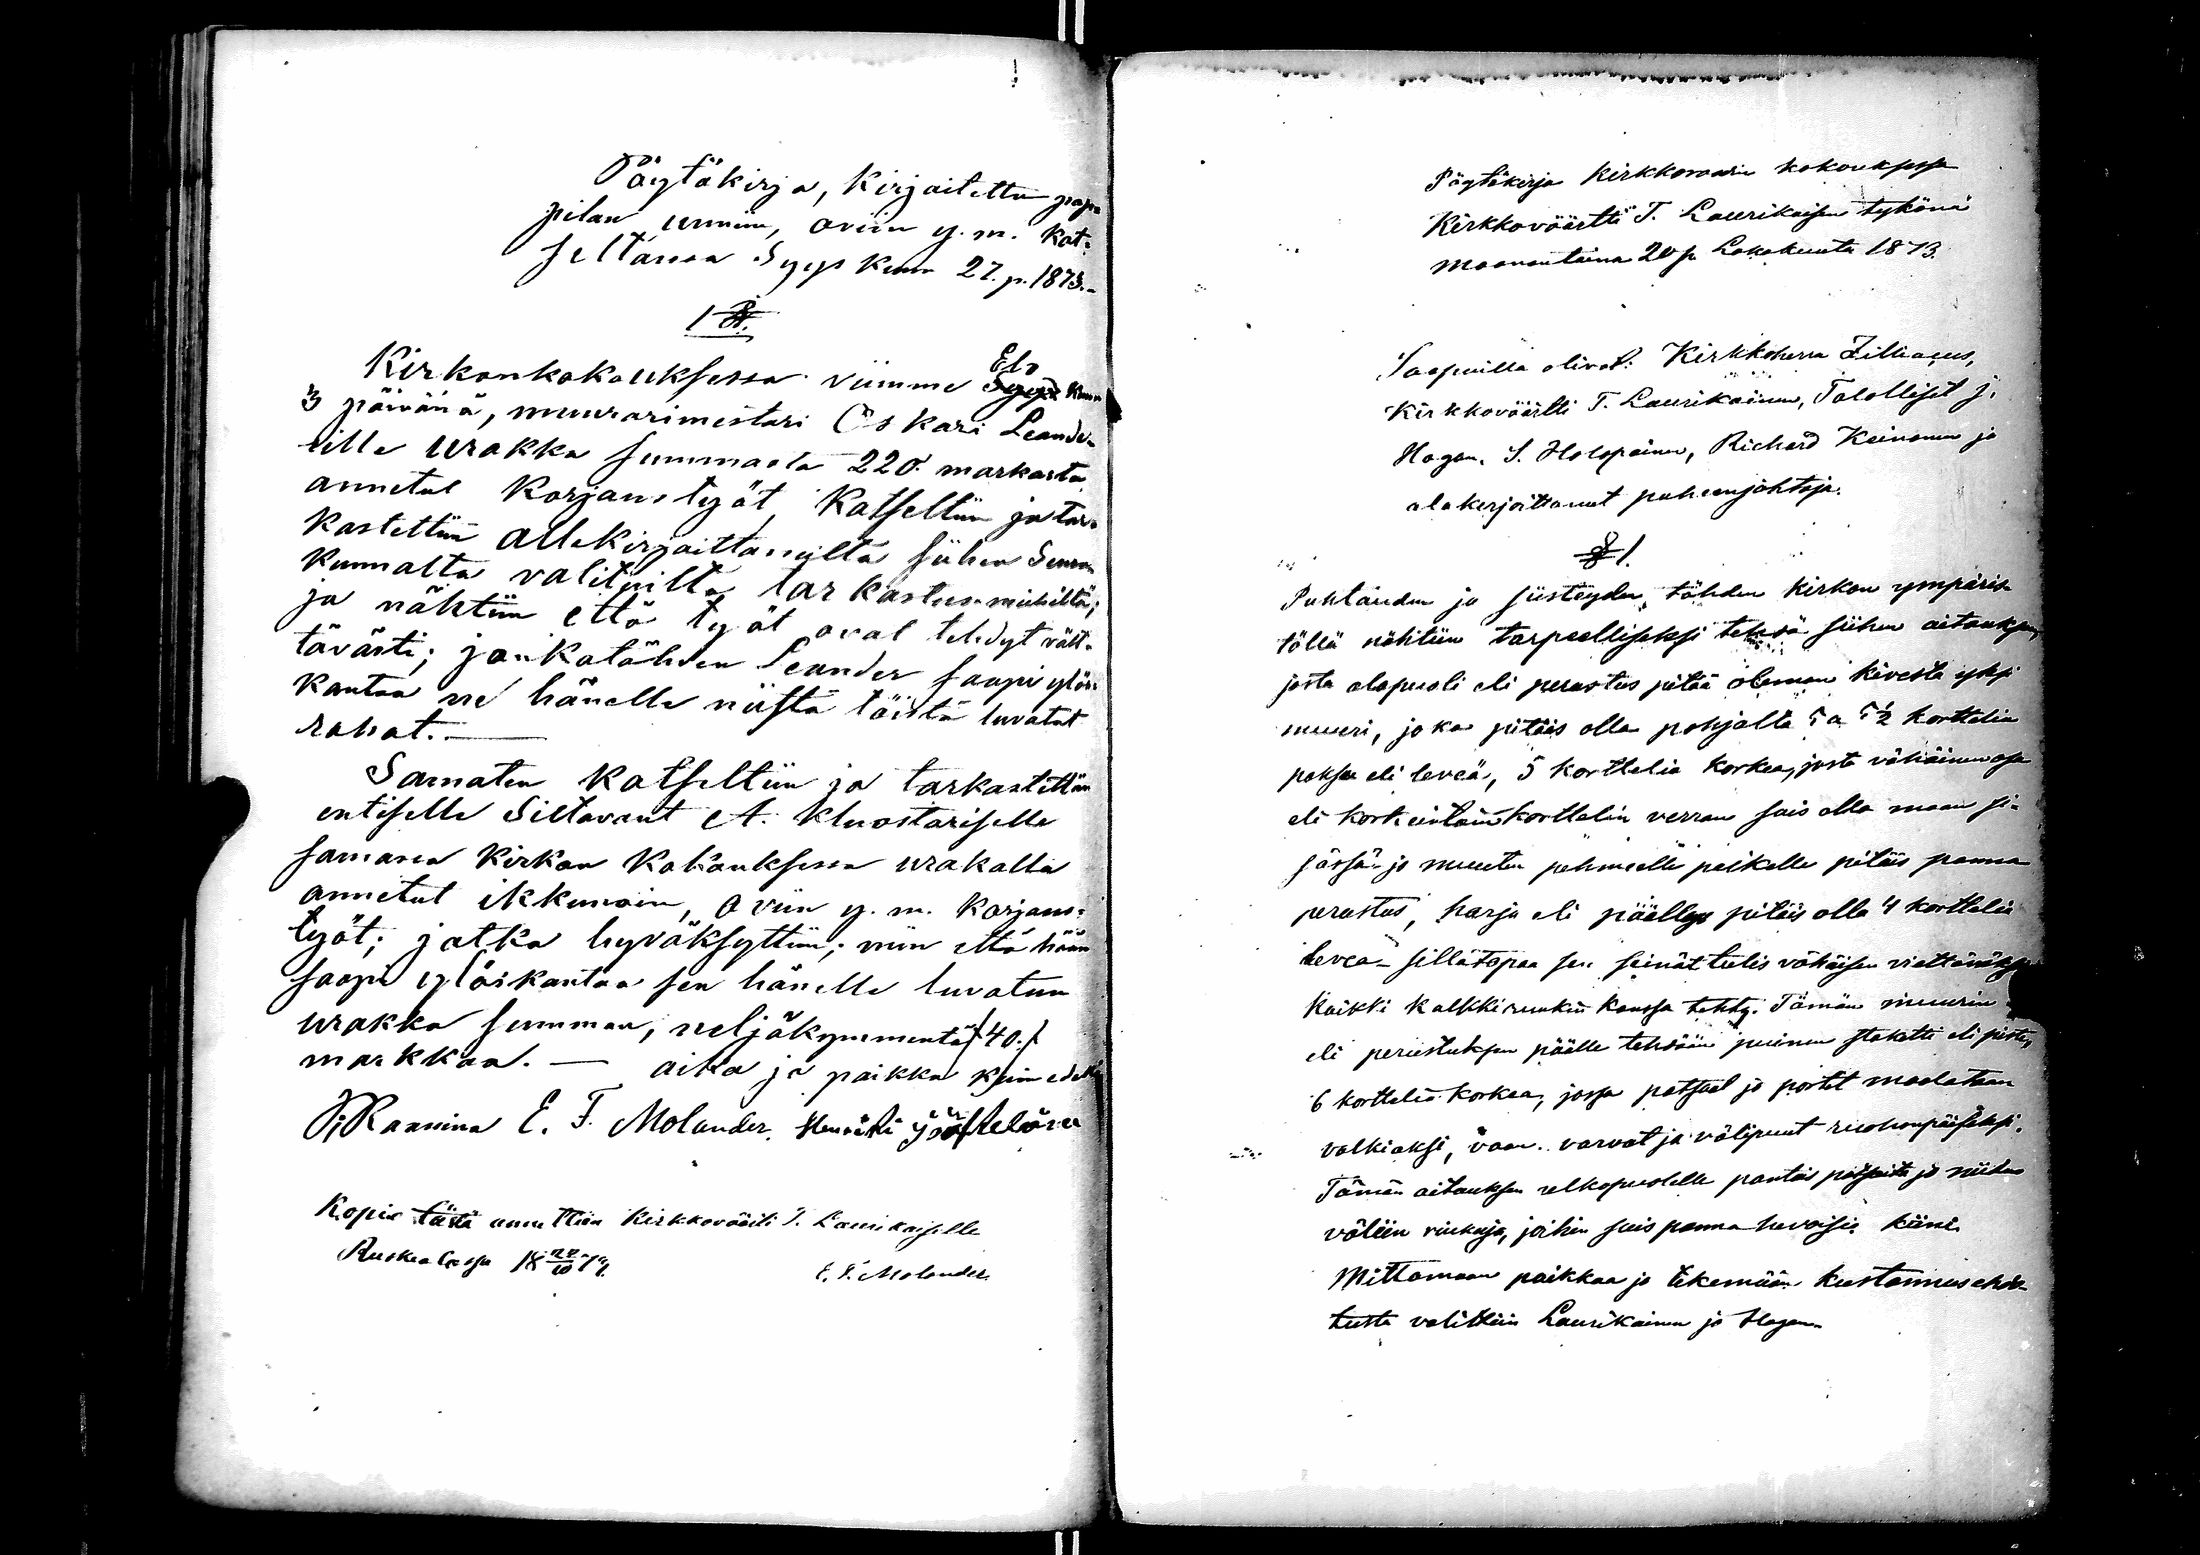 Pöytäkirja, kirjoitettu pap-
pilan uunin, oviin y. m. kat-
seltaissa Syyskuun 27. p. 1873.
1 §.
Kirkonkokouksessa viimme Elo kuun
3 päivänä, muurarimestari Oskari Leande-
rille urakka summasta 220. markasta
annetut korjaustyöt, katseltiin ja tar-
kastettiin allekirjoittaneilta siihen Seura-
kunnalta valituilta tarkastusmiehiltä;
ja nähtiin että työt ovat tehdyt vält-
tävästi; jonkatähden Leander saapi ylös-
kantaa ne hänelle niistä töistä luvatut
rahat. —
Samaten katseltiin ja tarkastettiin
entiselle Siltavout A. Kluostariselle
samassa kirkon kokouksessa urakalla
annetut ikkunoin, oviin y. m. korjaus-
työt; jotka hyväksyttiin; niin että hään
saapi ylöskantaa sen hänelle luvatun
urakka summan, neljäkymmentä /40./
markkaa. — aika ja paikka kuin edellä
E. F. Molander. Henrikki
Kopia tästä annettiin Kirkkoväärti T. Laurikaiselle
Ruskealassa 18 20/10 73.
E. F. Molander.
Pöytäkirja Kirkkoraadin kokouksessa
Kirkkoväärtti T. Laurikaisen tykönä
Moanantaina 20 p. Lokakuuta 1873.
Saapuilla olivat: Kirkkoherra Zilliacus,
Kirkkoväärtti T. Laurikainen, Talolliset J.
Hagan, S. Holopainen, Richard Keinonen ja
alakerjoittanut puheenjohtaja.
§ 1.
Puhtauden ja siisteyden tähden kirkon ympäris-
töllä nähtiin tarpeelliseksi tehdä siihen aitauksen,
josta alapuoli eli perustus pitää oleman kivestä yksi
muuri, joka pitäis olla pohjalta 5 a 5½ korttelia
paksu eli leveä, 5 korttelia korkea, josta vähäinen osa
eli korkeintain korttelin verran sais olla maan si-
sässä ja muuten pehmeelle paikalle pitäis panna
perustus, harja eli päällys pitäis olla 4 korttelia
leveä - sillätapaa sen seinät tulis vähäisen viettäväksi
kaikki kalkkiruukin kanssa tehty. Tämän muurin
eli perustuksen päälle tehdään puinen staketti eli piste,
6 korttelia korkea, jossa patsaat ja portit maalataan
valkiaksi, vaan varvat ja välipuut ruohonpäiseksi.
Tämän aitauksen ulkopuolelle pantais patsaita ja niiden
väliin rinkuja, joihin sais panna hevoisia kiini.
Mittamaan paikkaa ja tekemään kustannusehdo-
tusta valittiin Laurikainen ja Hagan.